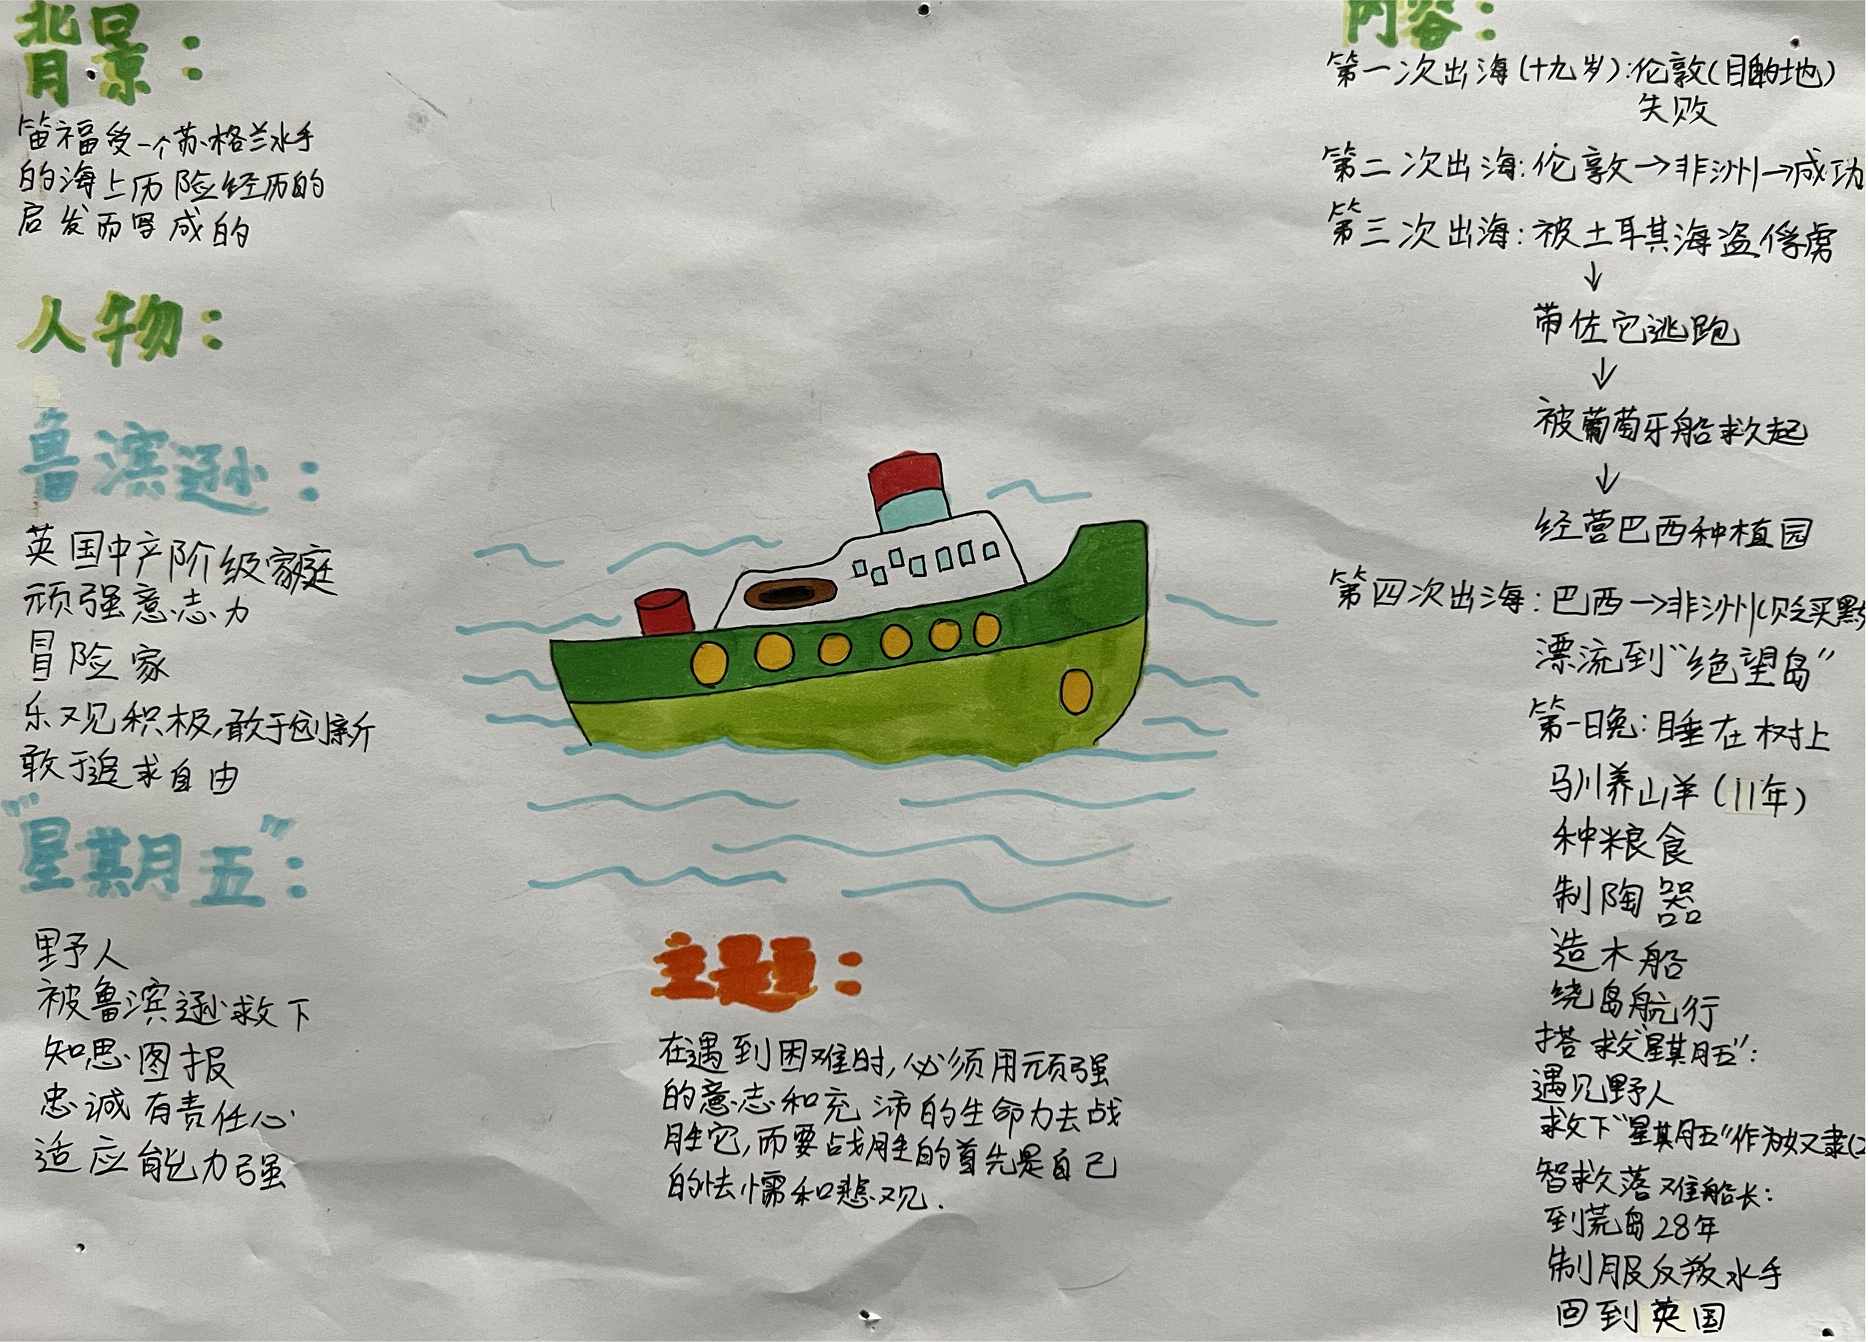 背景：
笛福受一个苏格兰水手
的海上历险经历的
启发而写成的
人物：
鲁滨逊：
英国中产阶级家庭
顽强意志力
冒险家
乐观积极,敢于创新
敢于追求自由
“星期五”：
野人
被鲁滨逊救下
知恩图报
忠诚有责任心
适应能力强
主题：
在遇到困难时,必须用顽强
的意志和充沛的生命力去战
胜它,而要战胜的首先是自己
的怯懦和悲观.
内容：
第一次出海(十九岁):伦敦(目的地)
失败
第二次出海:伦敦→非洲→成功
第三次出海:被土耳其海盗俘虏
↓
带佐它逃跑
↓
被葡萄牙船救起
↓
经营巴西种植园
第四次出海:巴西→非洲(贩买黑
漂流到“绝望岛”
第一日晚:睡在树上
驯养山羊(11年)
种粮食
制陶器
造木船
绕岛航行
搭救“星期五”:
遇见野人
救下“星期五”作为奴隶(2
智救落难船长:
到荒岛28年
制服反叛水手
回到英国